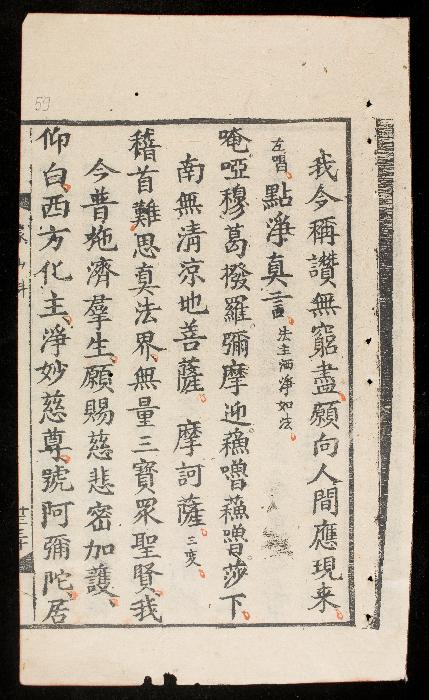 我今稱讚無窮盡願向人間應現来
左唱 點淨真言 法主洒淨如法
唵啞穆葛撥羅彌摩迎蘓嚕蘓嚕莎下
南無清涼地菩薩 摩訶薩 三变
稽首難思真法界無量三寶眾聖賢我
今普施濟羣生願賜慈悲密加護
仰白西方化主淨妙慈尊號阿彌陀居
59